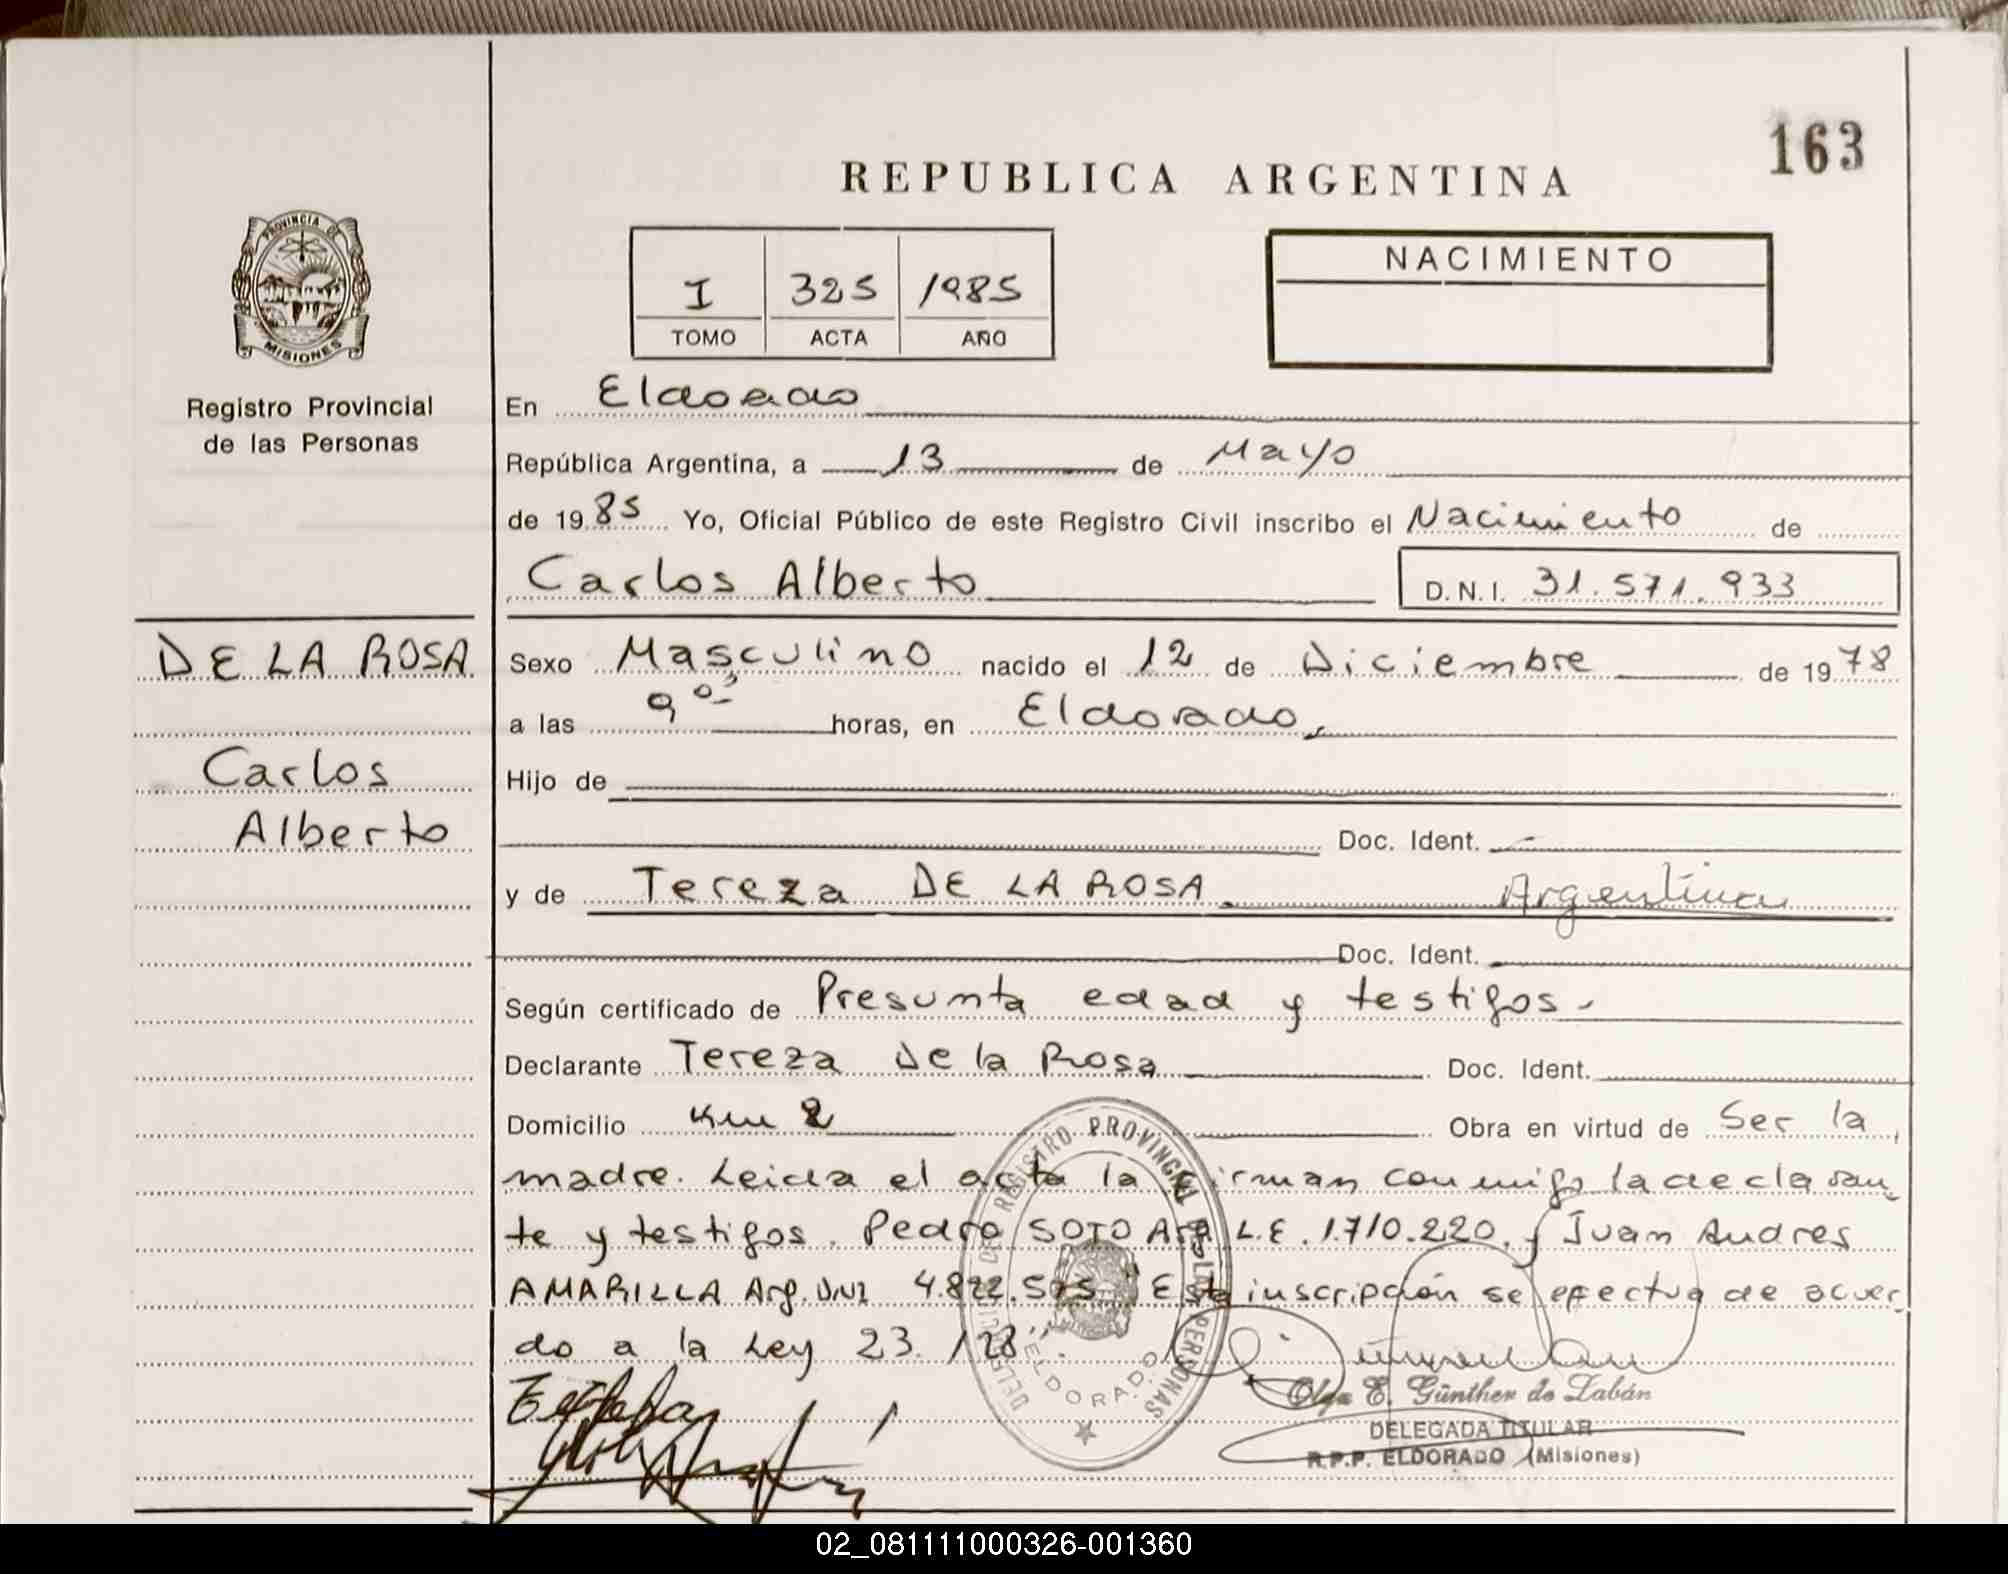 163
REPUBLICA ARGENTINA
PROVINCIA DE
MISIONES
Registro Provincial
de las Personas
I 325 1985
TOMO ACTA AÑO
NACIMIENTO
En Eldorado
República Argentina, a 13 de Mayo
de 1985 Yo, Oficial Público de este Registro Civil inscribo el Nacimiento de
Carlos Alberto D.N.I. 31.571.933
DE LA ROSA
Carlos
Alberto
Sexo Masculino nacido el 12 de Diciembre de 1978
a las 9 horas, en Eldorado.
Hijo de
Doc. Ident.
y de Tereza DE LA ROSA Argentina
Doc. Ident.
Según certificado de Presunta edad y testigos.
Declarante Tereza De la Rosa Doc. Ident.
Domicilio Km 2 Obra en virtud de Ser la
madre. Leida el acta la firman conmigo la declaran
te y testigos. Pedro SOTO Arg. L.E. 1.710.220. y Juan Andres
AMARILLA Arg. DNI 4.822.575 "Esta inscripción se efectua de acuer
do a la Ley 23.128".
REGISTRO PROVINCIAL DE LAS PERSONAS
ELDORADO
Olga E. Günther de Zabán
DELEGADA TITULAR
R.P.P. ELDORADO (Misiones)
02_081111000326-001360